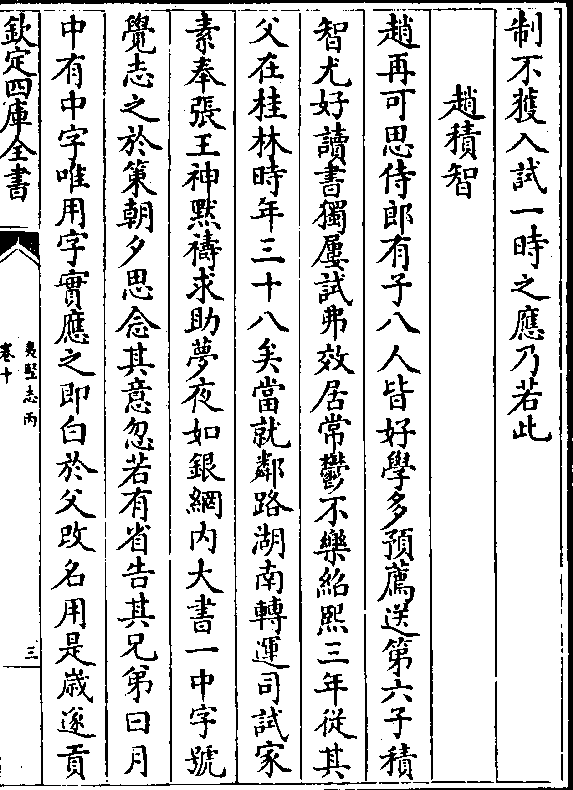 制不獲入試一時之應乃若此
趙積智
趙再可思侍郎有子八人皆好學多預薦送第六子積
智尤好讀書獨屢試弗效居常鬱不樂紹熙三年從其
父在桂林時年三十八矣當就鄰路湖南轉運司試家
素奉張王神默禱求助夢夜如銀網内大書一中字號
覺志之於策朝夕思念其意忽若有省告其兄弟曰月
中有中字唯用字實應之即白於父改名用是歲遂貢
欽定四庫全書
夷堅志丙
卷十
三